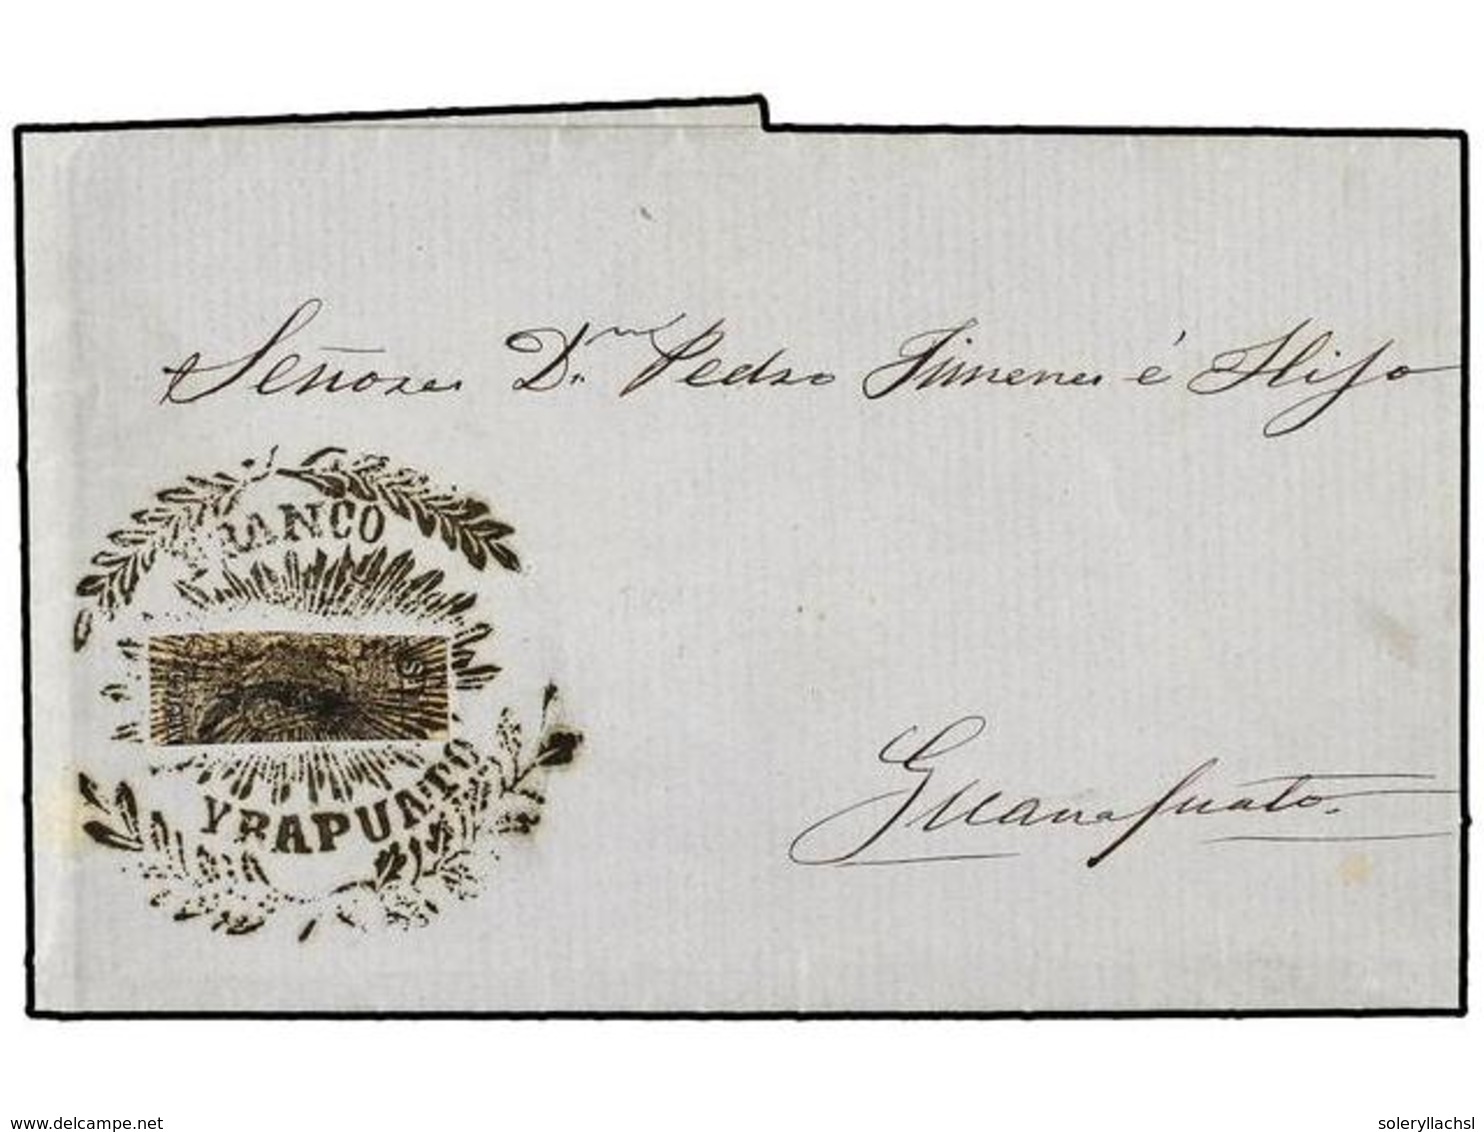 Señores Dn. Pedro Jimenes é Hijo
FRANCO
YRAPUATO
Guanajuato.
delcampe.net
soleryllachsl